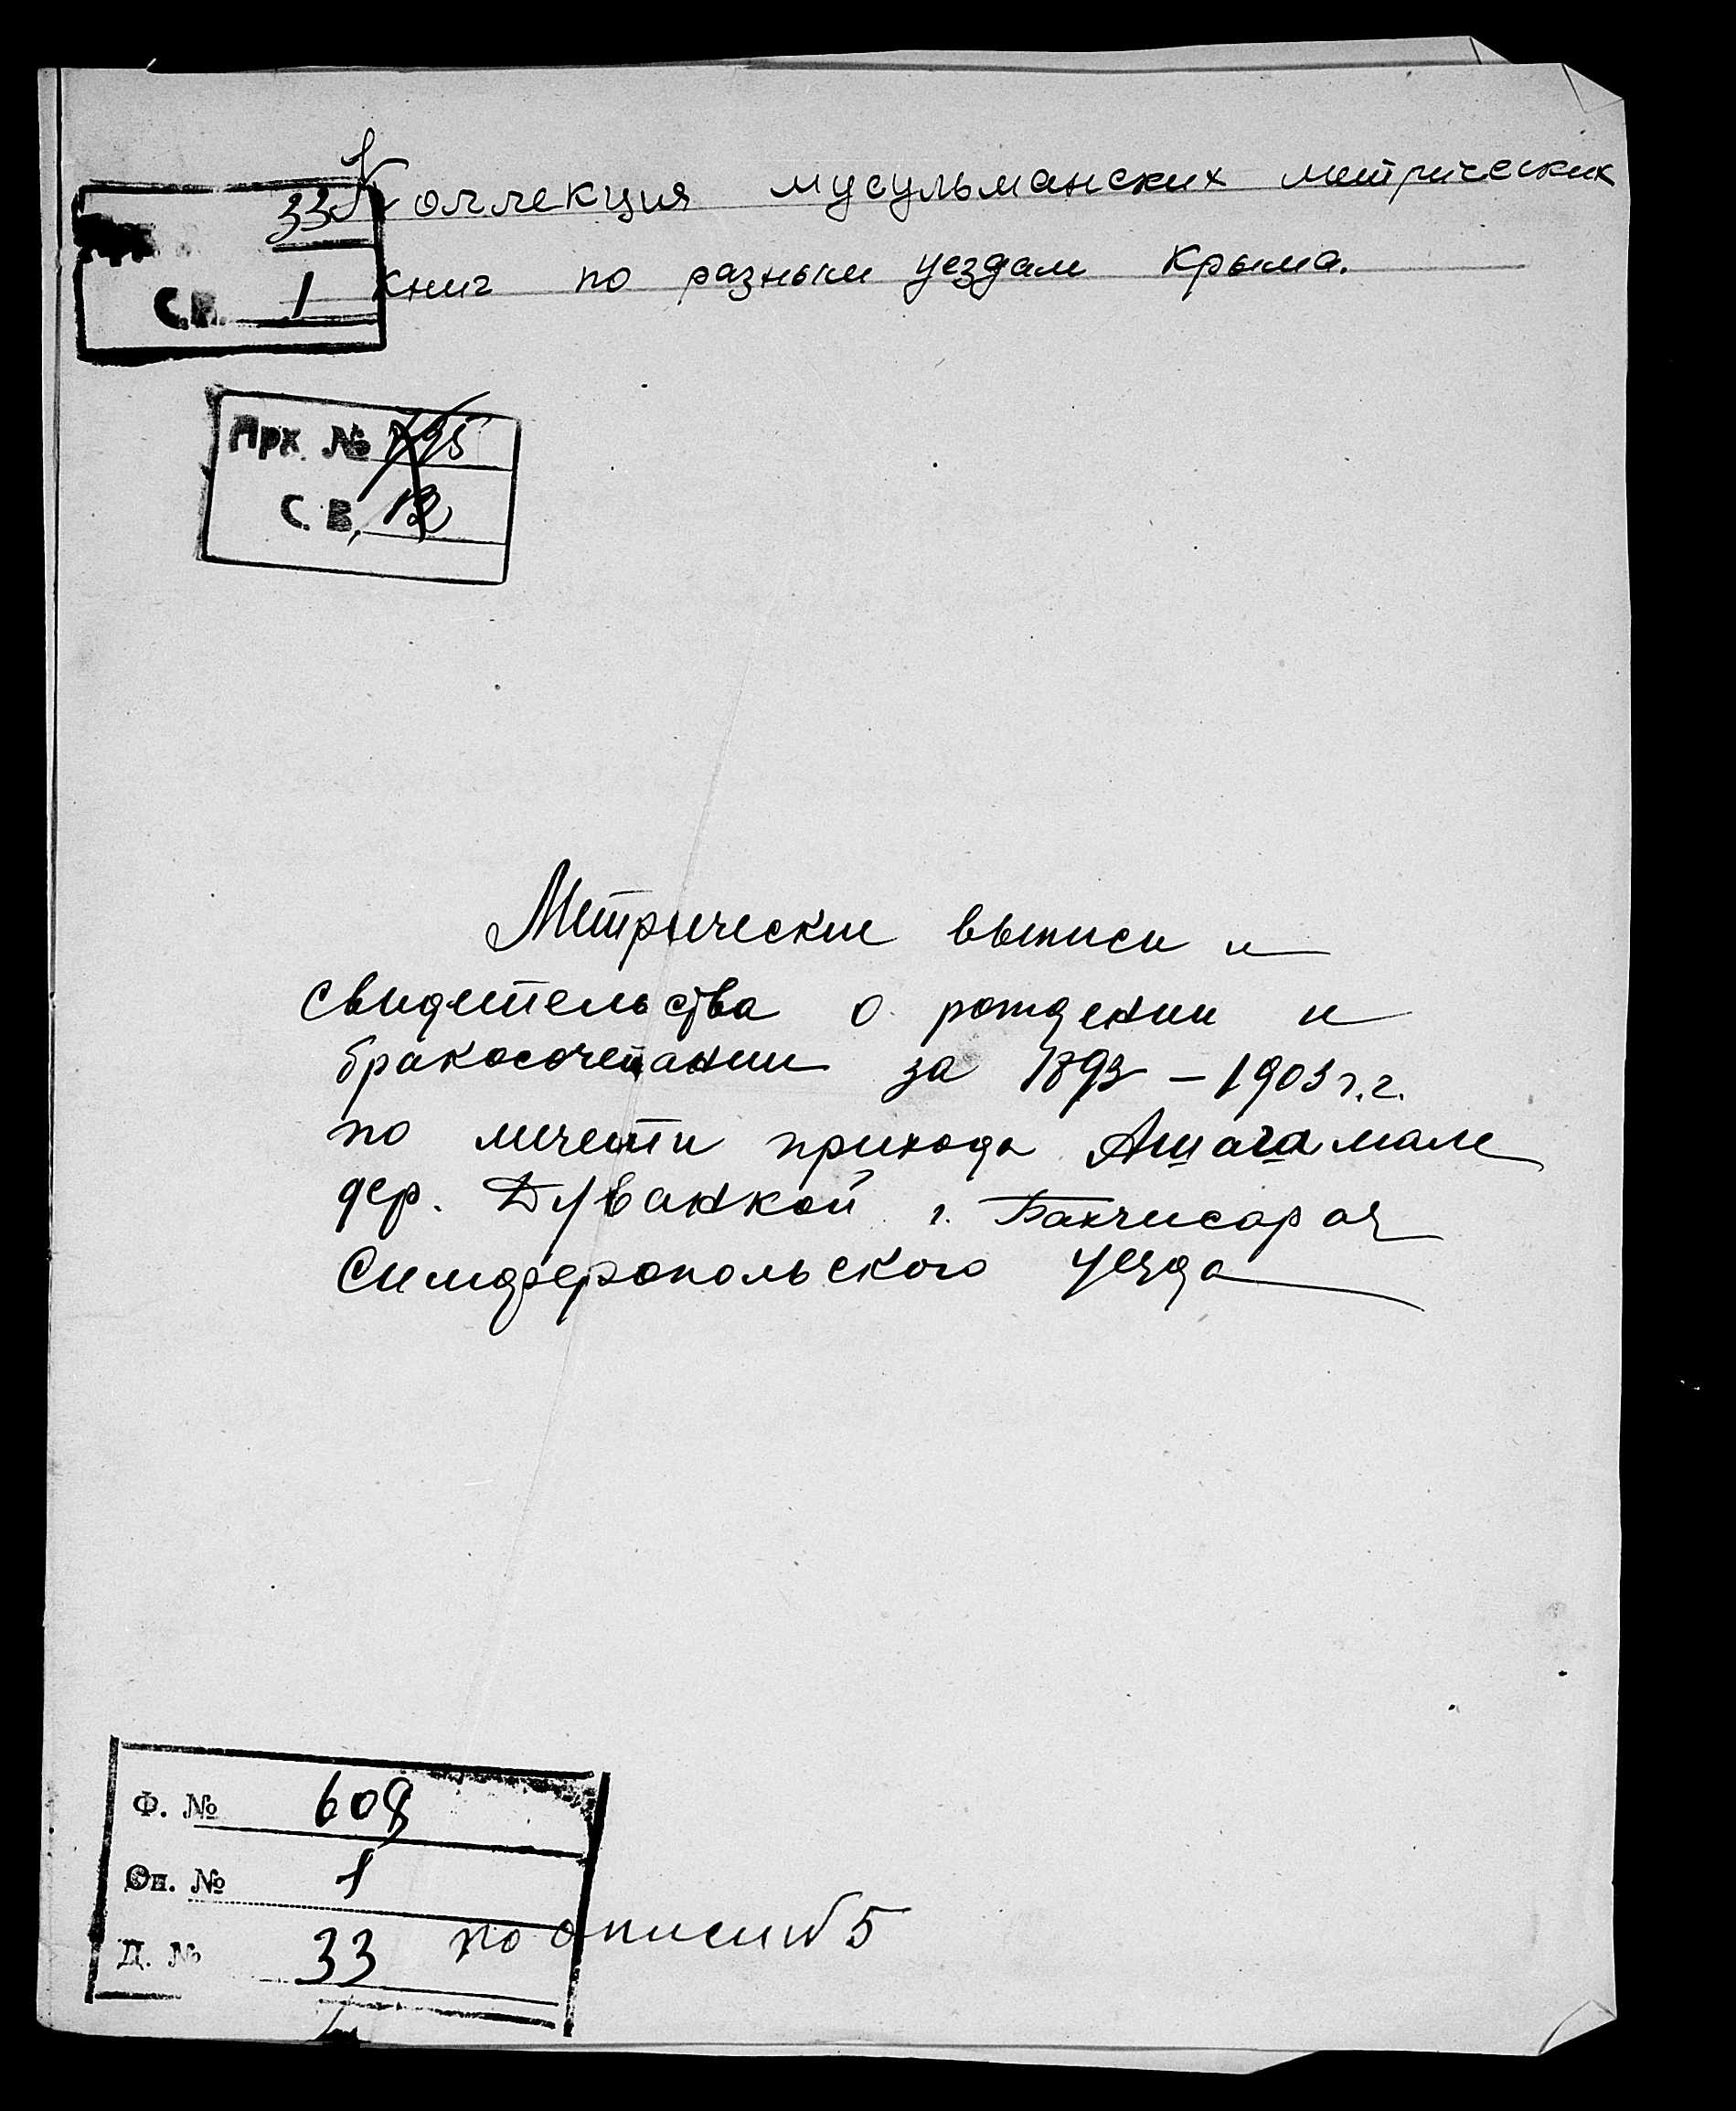 33
Коллекция мусульманских метрических
С.В. 1
книг по разным уездам Крыма.
Арх. №
С. В. 12
Метрические выписи и
свидетельства о рождении и
бракосочетании за 1893 – 1903 г.г.
по мечети прихода Ашага мале
дер. Дуванкой г. Бахчисарая
Симферопольского уезда
Ф. № 608
Оп. № 1
Д. № 33
по описи № 5